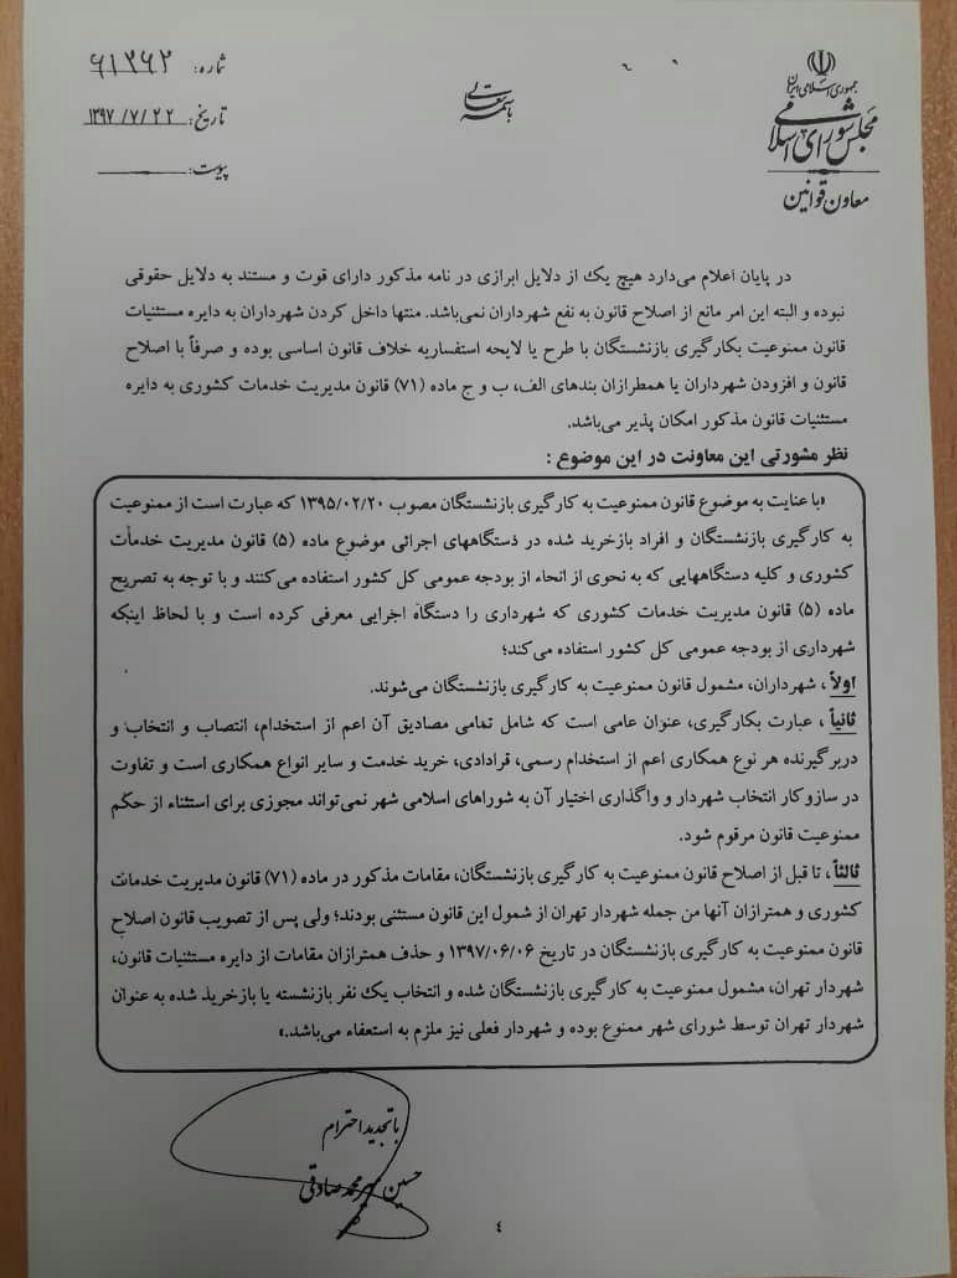 جمهوری اسلامی ایران
مجلس شورای اسلامی
معاون قوانین
باسمه تعالی
شماره: ۶۱۳۶۲
تاریخ: ۱۳۹۷/۷/۲۲
پیوست:
در پایان اعلام می‌دارد هیچ یک از دلایل ابرازی در نامه مذکور دارای قوت و مستند به دلایل حقوقی
نبوده و البته این امر مانع از اصلاح قانون به نفع شهرداران نمی‌باشد. منتها داخل کردن شهرداران به دایره مستثنیات
قانون ممنوعیت بکارگیری بازنشستگان با طرح یا لایحه استفساریه خلاف قانون اساسی بوده و صرفاً با اصلاح
قانون و افزودن شهرداران یا همطرازان بندهای الف، ب و ج ماده (۷۱) قانون مدیریت خدمات کشوری به دایره
مستثنیات قانون مذکور امکان پذیر می‌باشد.
نظر مشورتی این معاونت در این موضوع :
«با عنایت به موضوع قانون ممنوعیت به کارگیری بازنشستگان مصوب ۱۳۹۵/۰۲/۲۰ که عبارت است از ممنوعیت
به کارگیری بازنشستگان و افراد بازخرید شده در دستگاههای اجرائی موضوع ماده (۵) قانون مدیریت خدمات
کشوری و کلیه دستگاههایی که به نحوی از انحاء از بودجه عمومی کل کشور استفاده می‌کنند و با توجه به تصریح
ماده (۵) قانون مدیریت خدمات کشوری که شهرداری را دستگاه اجرایی معرفی کرده است و با لحاظ اینکه
شهرداری از بودجه عمومی کل کشور استفاده می‌کند؛
اولاً ، شهرداران، مشمول قانون ممنوعیت به کارگیری بازنشستگان می‌شوند.
ثانیاً ، عبارت بکارگیری، عنوان عامی است که شامل تمامی مصادیق آن اعم از استخدام، انتصاب و انتخاب و
دربرگیرنده هر نوع همکاری اعم از استخدام رسمی، قرادادی، خرید خدمت و سایر انواع همکاری است و تفاوت
در سازوکار انتخاب شهردار و واگذاری اختیار آن به شوراهای اسلامی شهر نمی‌تواند مجوزی برای استثناء از حکم
ممنوعیت قانون مرقوم شود.
ثالثاً ، تا قبل از اصلاح قانون ممنوعیت به کارگیری بازنشستگان، مقامات مذکور در ماده (۷۱) قانون مدیریت خدمات
کشوری و همترازان آنها من جمله شهردار تهران از شمول این قانون مستثنی بودند؛ ولی پس از تصویب قانون اصلاح
قانون ممنوعیت به کارگیری بازنشستگان در تاریخ ۱۳۹۷/۰۶/۰۶ و حذف همترازان مقامات از دایره مستثنیات قانون،
شهردار تهران، مشمول ممنوعیت به کارگیری بازنشستگان شده و انتخاب یک نفر بازنشسته یا بازخرید شده به عنوان
شهردار تهران توسط شورای شهر ممنوع بوده و شهردار فعلی نیز ملزم به استعفاء می‌باشد.»
با تجدید احترام
حسین میرمحمد صادقی
٤